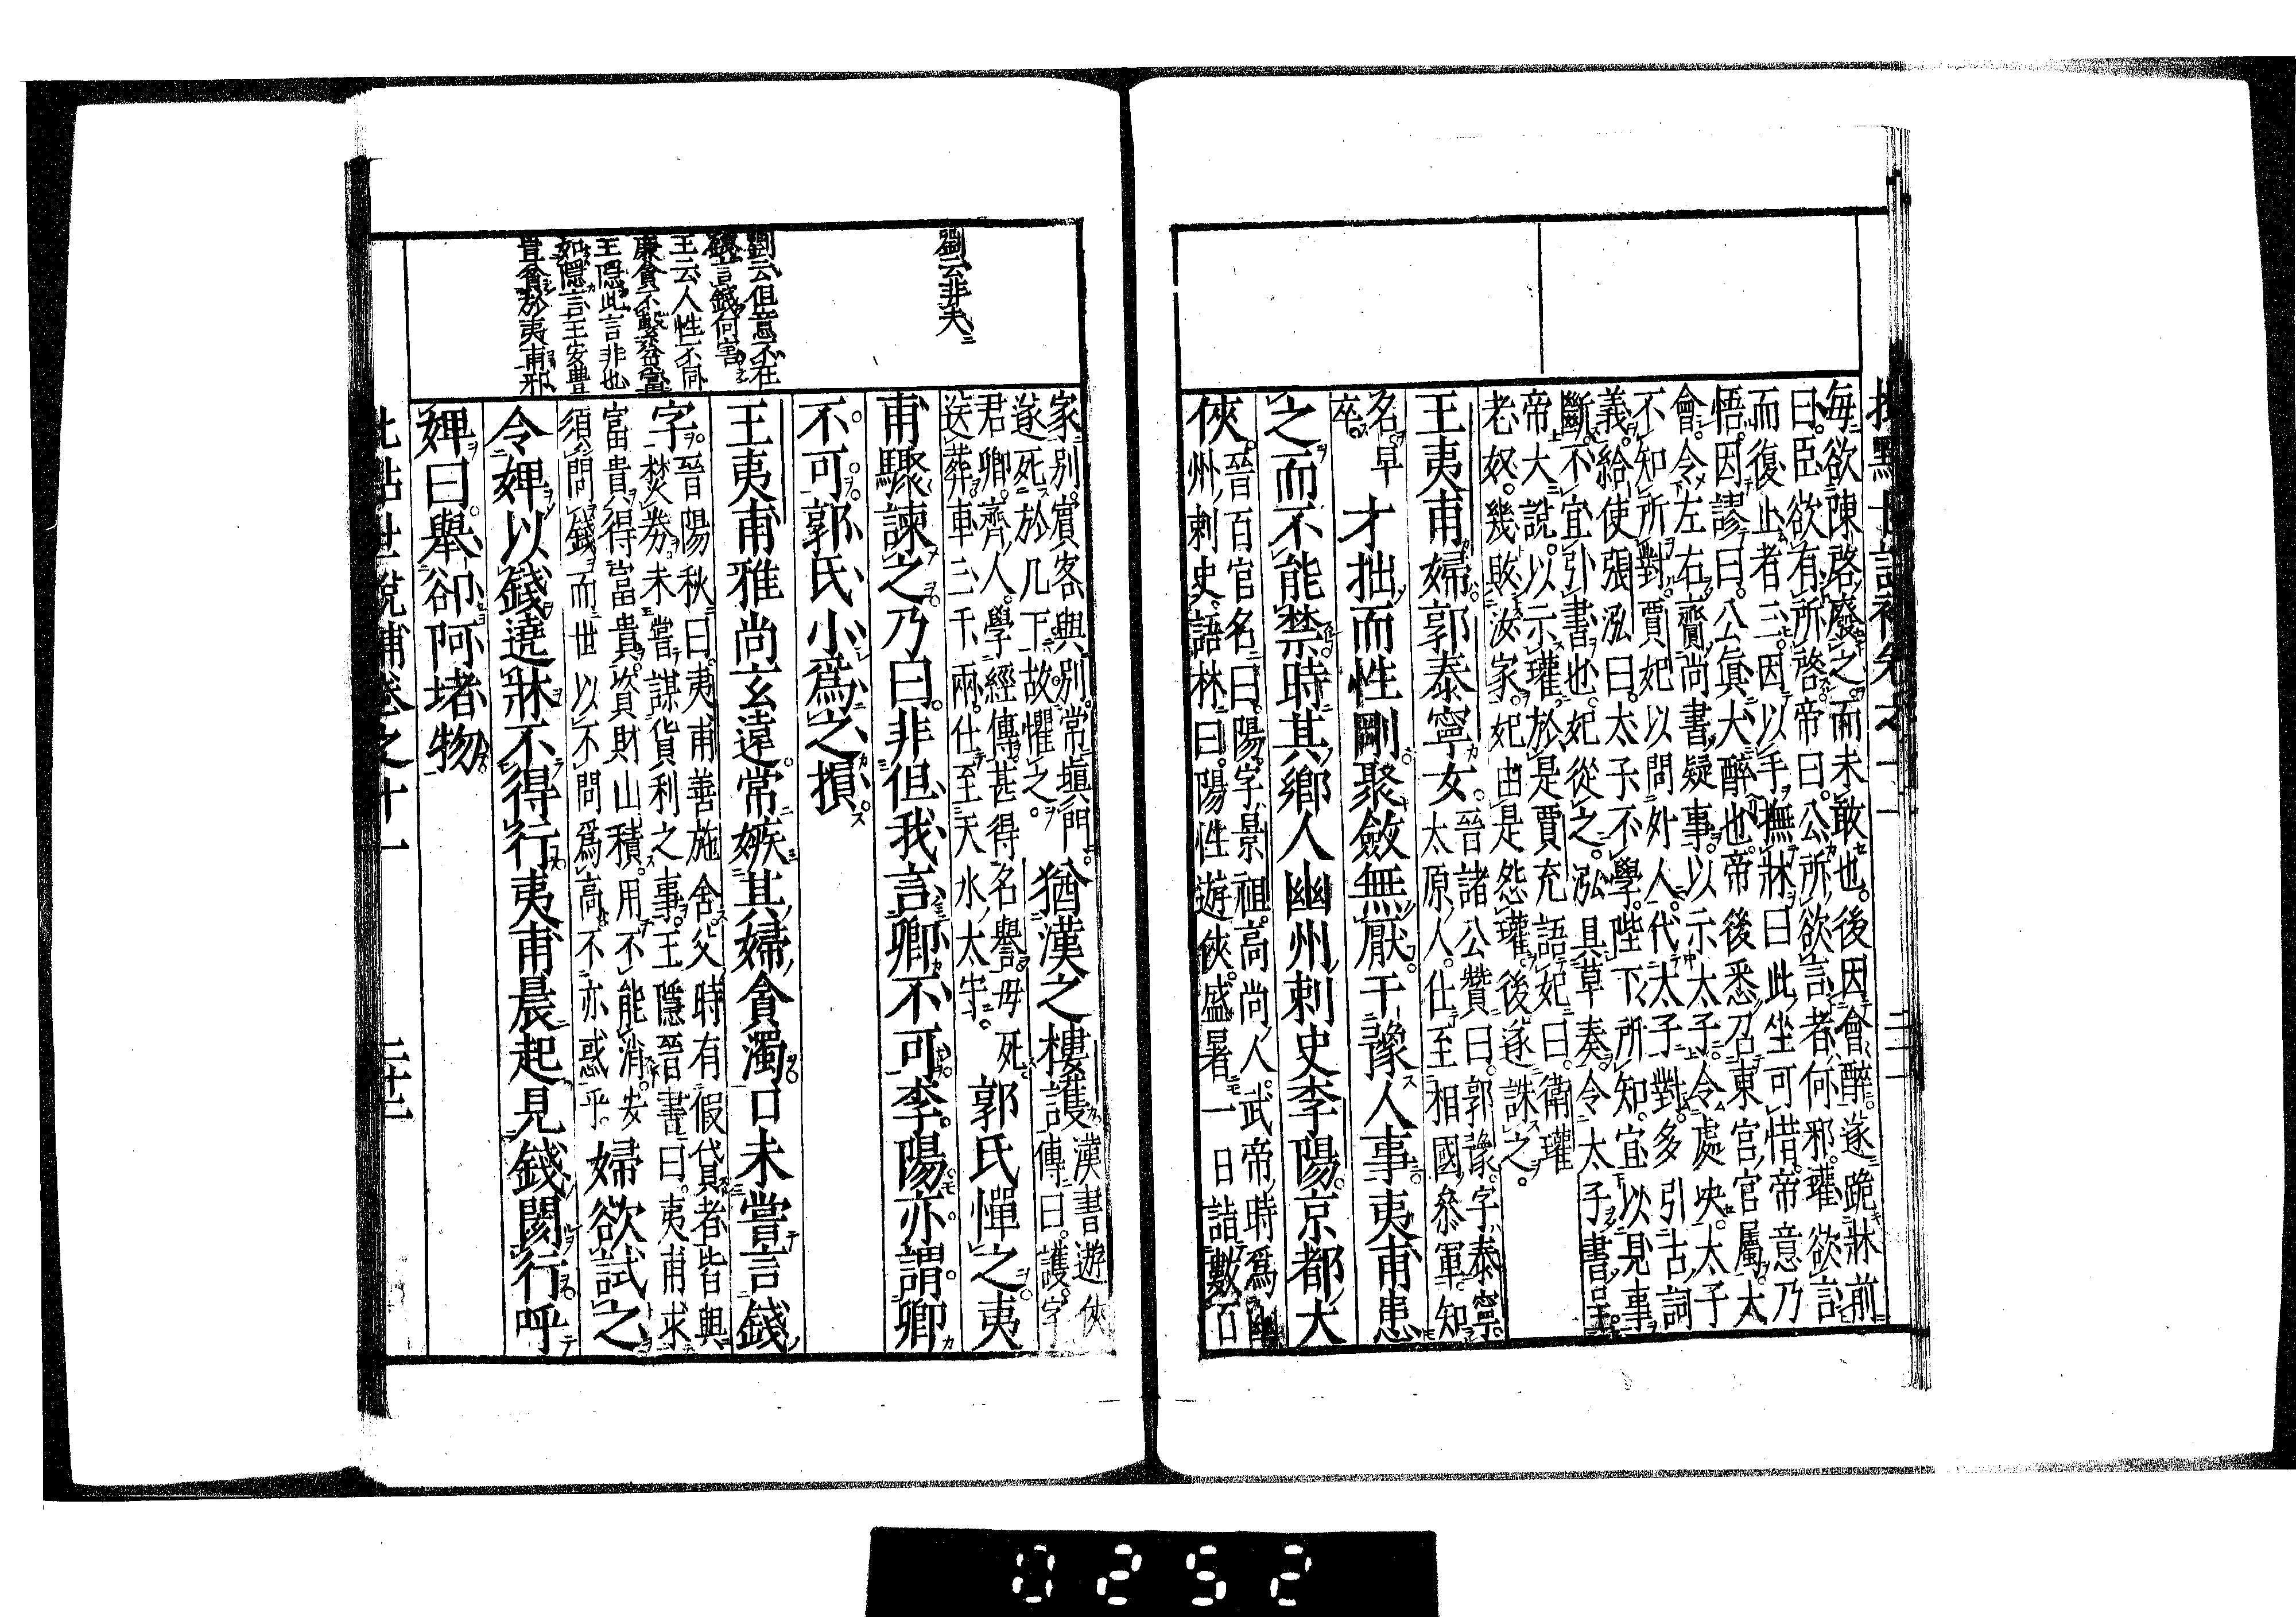 每欲陳啓廢之而未敢也後因會醉遂跪牀前
曰臣欲有所啓帝曰公所欲言者何邪瓘欲言
而復止者三因以手撫牀曰此坐可惜帝意乃
悟因謬曰公眞大醉也帝後悉召東宮官屬大
會令左右齎尚書疑事以示太子令處決太子
不知所對賈妃以問外人代太子對多引古詞
義給使張泓曰太子不學陛下所知宜以見事
斷不宜引書也妃從之泓具草奏令太子書呈
帝大說以示瓘於是賈充語妃曰衛瓘
老奴幾敗汝家妃由是怨瓘後遂誅之
王夷甫婦郭泰寧女晉諸公贊曰郭豫字泰寧
太原人仕至相國參軍知
名早
卒
才拙而性剛聚斂無厭干豫人事夷甫患
之而不能禁時其鄉人幽州刺史李陽京都大
俠晉百官名曰陽字景祖高尚人武帝時爲幽
州刺史語林曰陽性遊俠盛暑一日詣數百
家別賓客與別常塡門
遂死於几下故懼之
猶漢之樓護漢書遊俠
傳曰護字
君卿齊人學經傳甚得名譽母死
送葬車三千兩仕至天水太守
郭氏憚之夷
甫驟諫之乃曰非但我言卿不可李陽亦謂卿
不可郭氏小爲之損
王夷甫雅尚玄遠常嫉其婦貪濁口未嘗言錢
字晉陽秋曰夷甫善施舍父時有假貸者皆與
焚券未嘗謀貨利之事王隱晉書曰夷甫求
富貴得富貴資財山積用不能消安
須問錢而世以不問爲高不亦惑乎
婦欲試之
令婢以錢遶牀不得行夷甫晨起見錢閡行呼
婢曰舉卻阿堵物
批點世說補卷之十一
二十二
劉云非夫
劉云但意不在
錢言錢何害
王云人性不同
廉貪不繫谷富
王隱此言非也
如隱言王安豊
豈貪於夷甫邪
0252